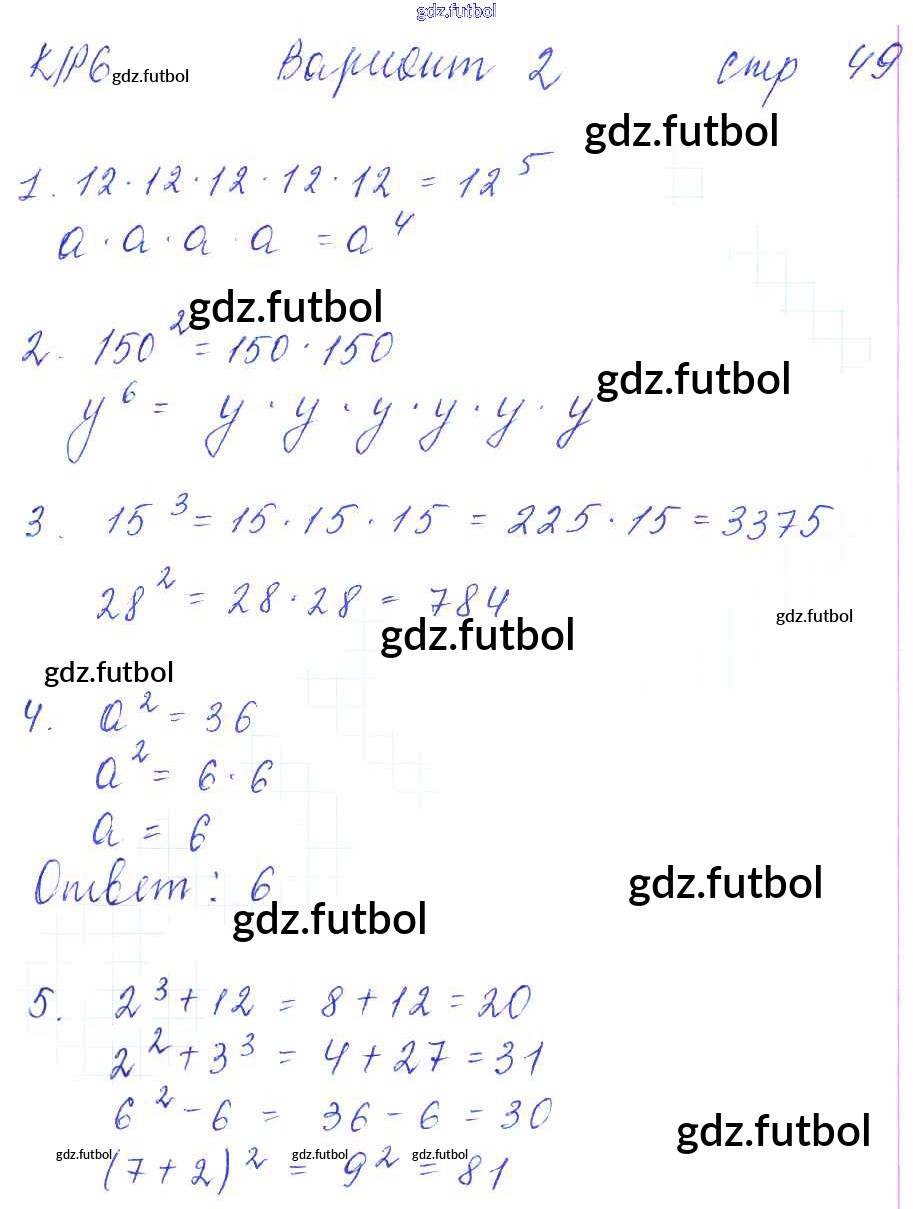 gdz.futbol
К/Р6 gdz.futbol Вариант 2 стр 49
gdz.futbol
1. 12 · 12 · 12 · 12 · 12 = 12⁵
a · a · a · a = a⁴
gdz.futbol
2. 150² = 150 · 150
gdz.futbol
y⁶ = y · y · y · y · y · y
3. 15³ = 15 · 15 · 15 = 225 · 15 = 3375
28² = 28 · 28 = 784
gdz.futbol
gdz.futbol
gdz.futbol
4. a² = 36
a² = 6 · 6
a = 6
Ответ: 6
gdz.futbol
gdz.futbol
5. 2³ + 12 = 8 + 12 = 20
2² + 3³ = 4 + 27 = 31
6² - 6 = 36 - 6 = 30
gdz.futbol
gdz.futbol gdz.futbol gdz.futbol
(7 + 2)² = 9² = 81